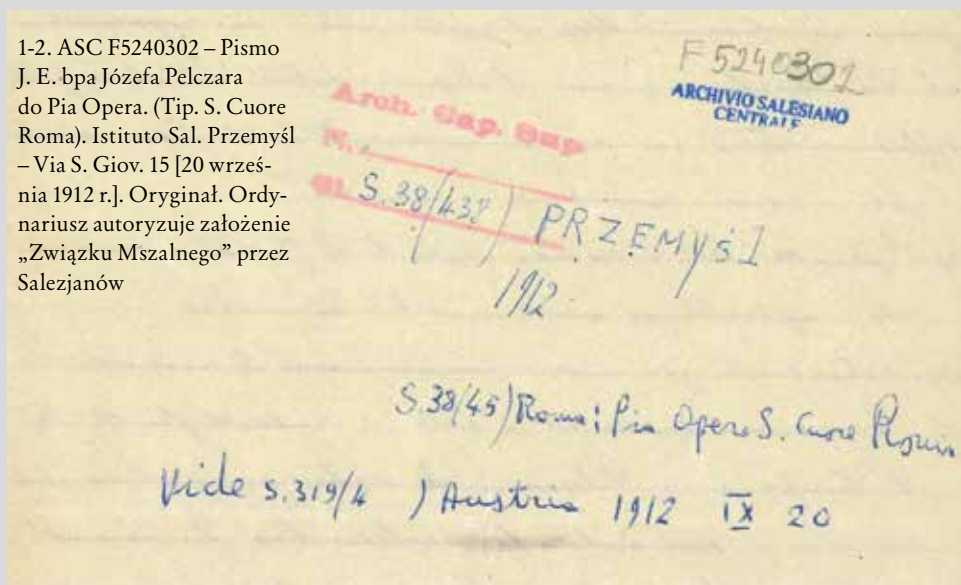 1-2. ASC F5240302 – Pismo
J. E. bpa Józefa Pelczara
do Pia Opera. (Tip. S. Cuore
Roma). Istituto Sal. Przemyśl
– Via S. Giov. 15 [20 wrześ-
nia 1912 r.]. Oryginał. Ordy-
nariusz autoryzuje założenie
„Związku Mszalnego” przez
Salezjanów
F 5240302
ARCHIVIO SALESIANO
CENTRALE
Arch. Cap. Sup
N.
S.38(438) PRZEMYŚL
1912
S.38(45) Roma: Pia Opera S. Cuore
Vide S.319/4 ) Austria 1912 IX 20